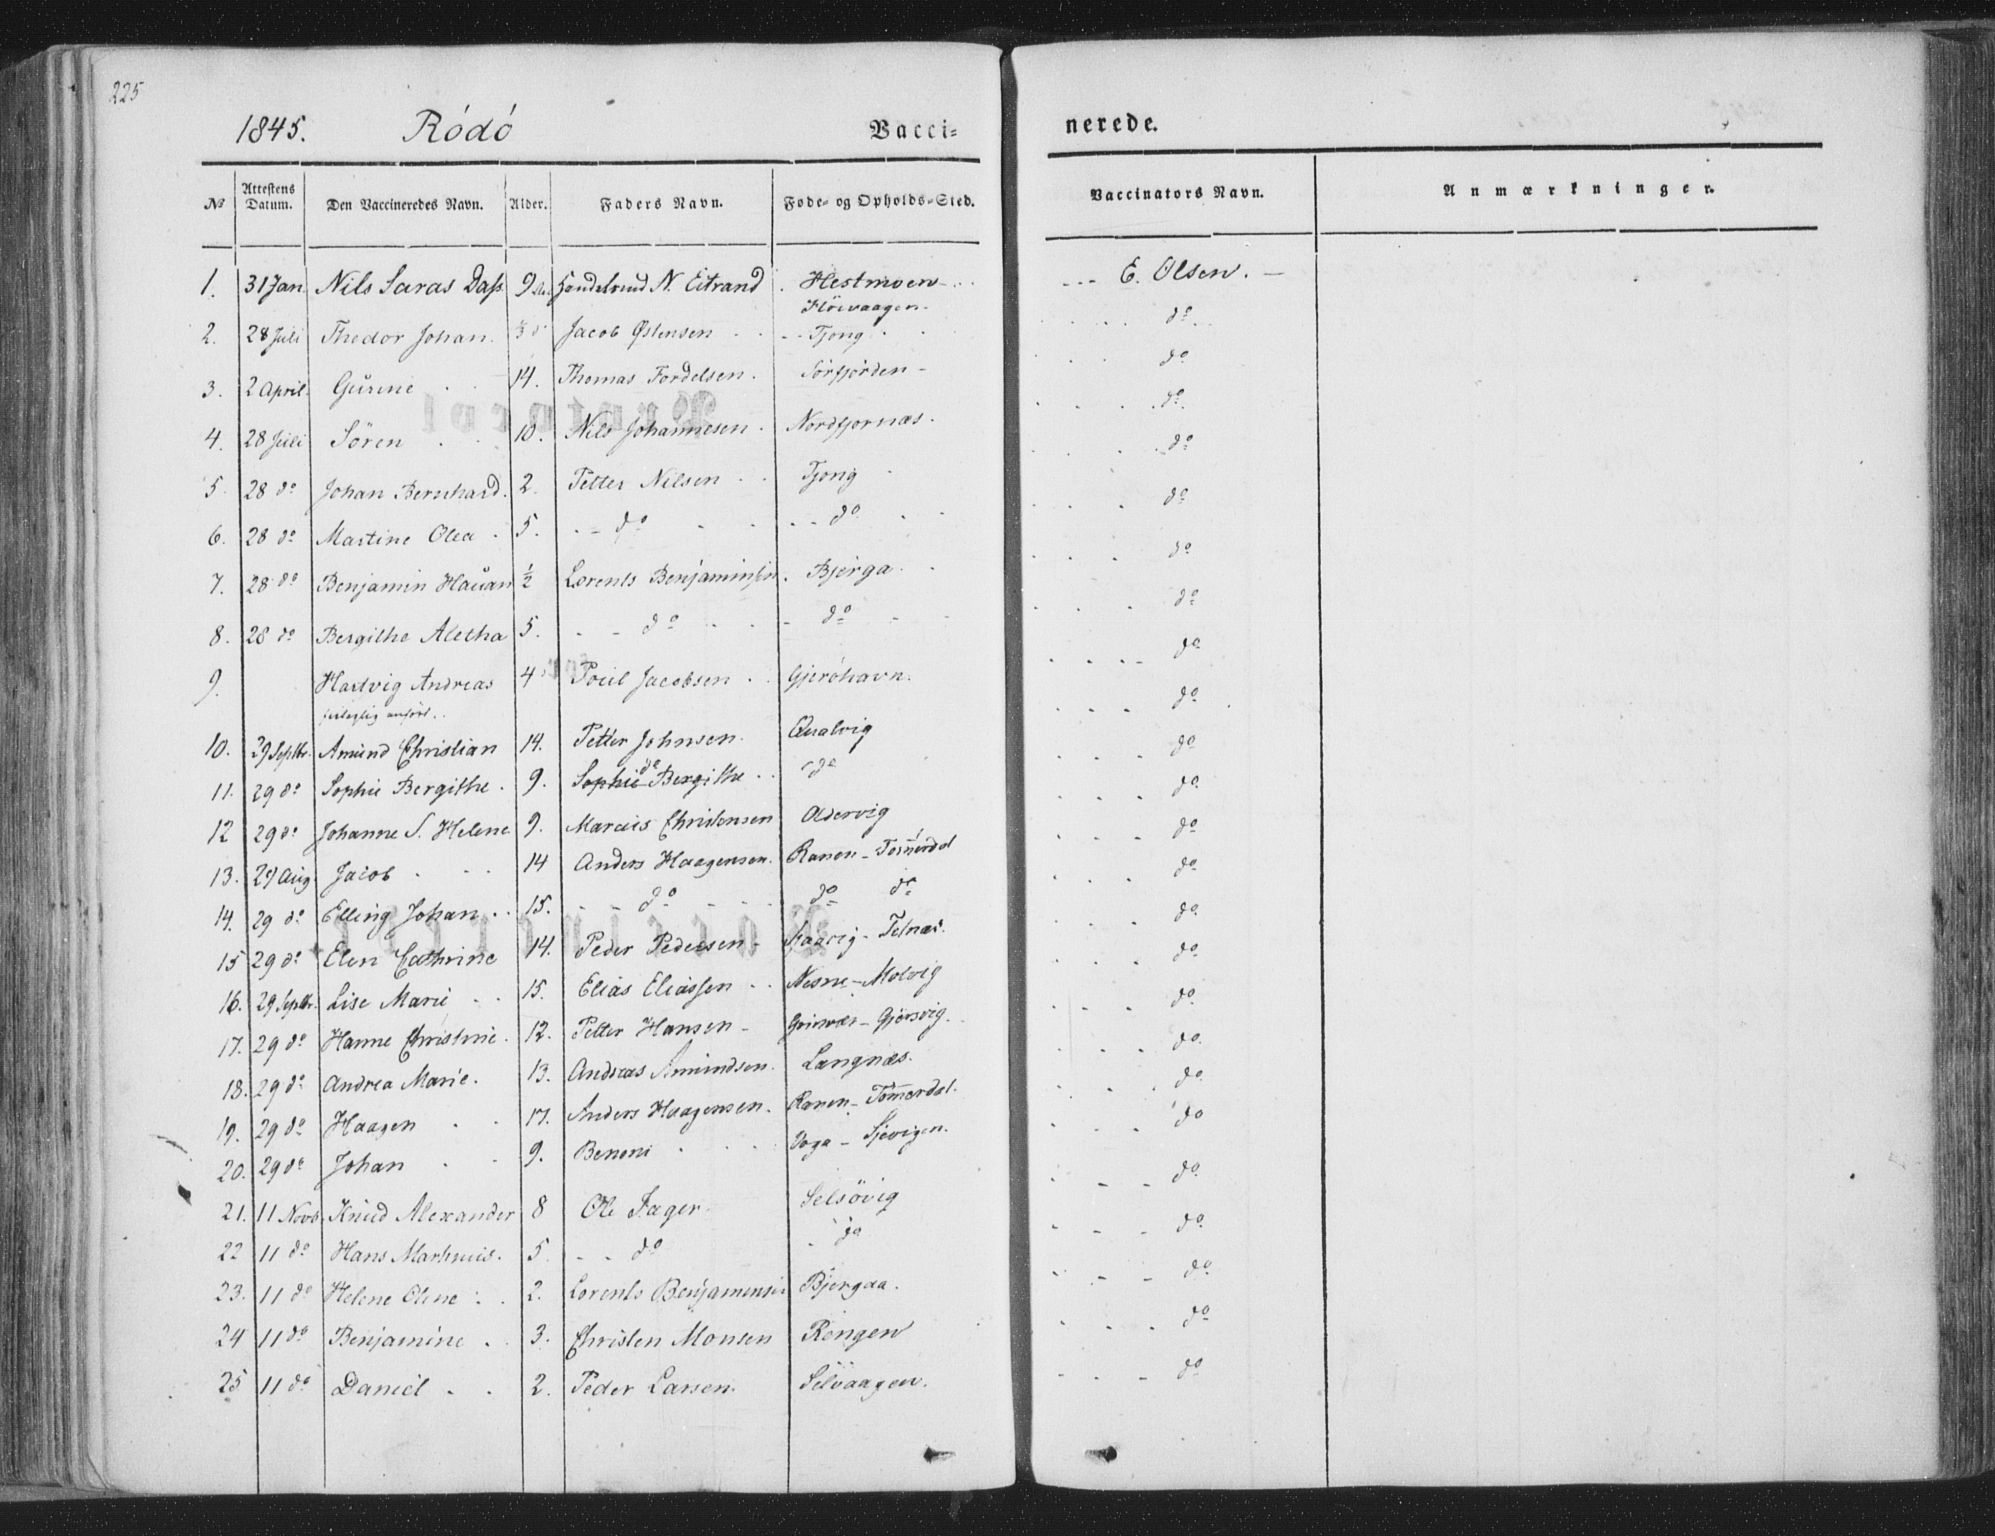 225
1845. Rödö Vacci= nerede.
№ Attestens Datum. Den Vaccineredes Navn. Alder. Faders Navn. Føde- og Opholds-Sted. Vaccinators Navn. Anmærkninger.
1. 31 Jan Nils Saras Dass 9 Handelsmd N. Eitrand Hestmoen E. Olsen.
Flöivaagen
2. 28 Juli Thedor Johan Jacob Østensen Tjong do
3. 2 April Gurine 14. Thomas Tordelsen. Sörfjorden do
4. 28 Juli Sören 10. Nils Johannesen Nordfjornæs. do
5. 28 do Johan Bernhard. 2. Petter Nilsen Tjong do
6. 28 do Martine Olea 5. do do do
7. 28 do Benjamin Hauan ½ Lorents Benjaminsen Bjerga do
8. 28 do Bergithe Aletha 5. do do do
9. Hartvig Andreas 4 Poul Jacobsen Gjeröhavn. do
feilagtig anfört
10. 29 Septbr. Amund Christian 14. Petter Johnsen Qualvig do
11. 29 do Sophie Bergithe 9. Sophie Bergithe do do do
12 29 do Johanne S. Helene 9. Marcus Christensen Oldervig do
13. 29 Aug Jacob 14 Anders Haagensen. Ranen - Tömerdal do
14. 29 do Elling Johan 15. do do do do
15 29 do Elen Cathrine 14. Peder Pedersen - Telnæs. do
16. 29 Septbr. Lise Marie 15. Elias Eliassen Nesne - Molvig do
17. 29 do Hanne Christine 12. Petter Hansen - Gjersvig do
18. 29 do Andrea Marie. 13. Andreas Amundsen. Langnæs. do
19. 29 do Haagen 17. Anders Haagensen. Ranen - Tömerdal. do
20. 29 do Johan 9. Benoni Sjövigen. do
21. 11 Novb. Knud Alexander 8 Ole Fager Selsövig do
22 11 do Hans Martinus. 5 do do do
23. 11 do Helene Oline 2. Lorents Benjaminsen Bjergaa. do
24 11 do Benjamine 3. Christen Monsen Rengen do
25 11 do Daniel 2. Peder Larsen Silvaagen. do